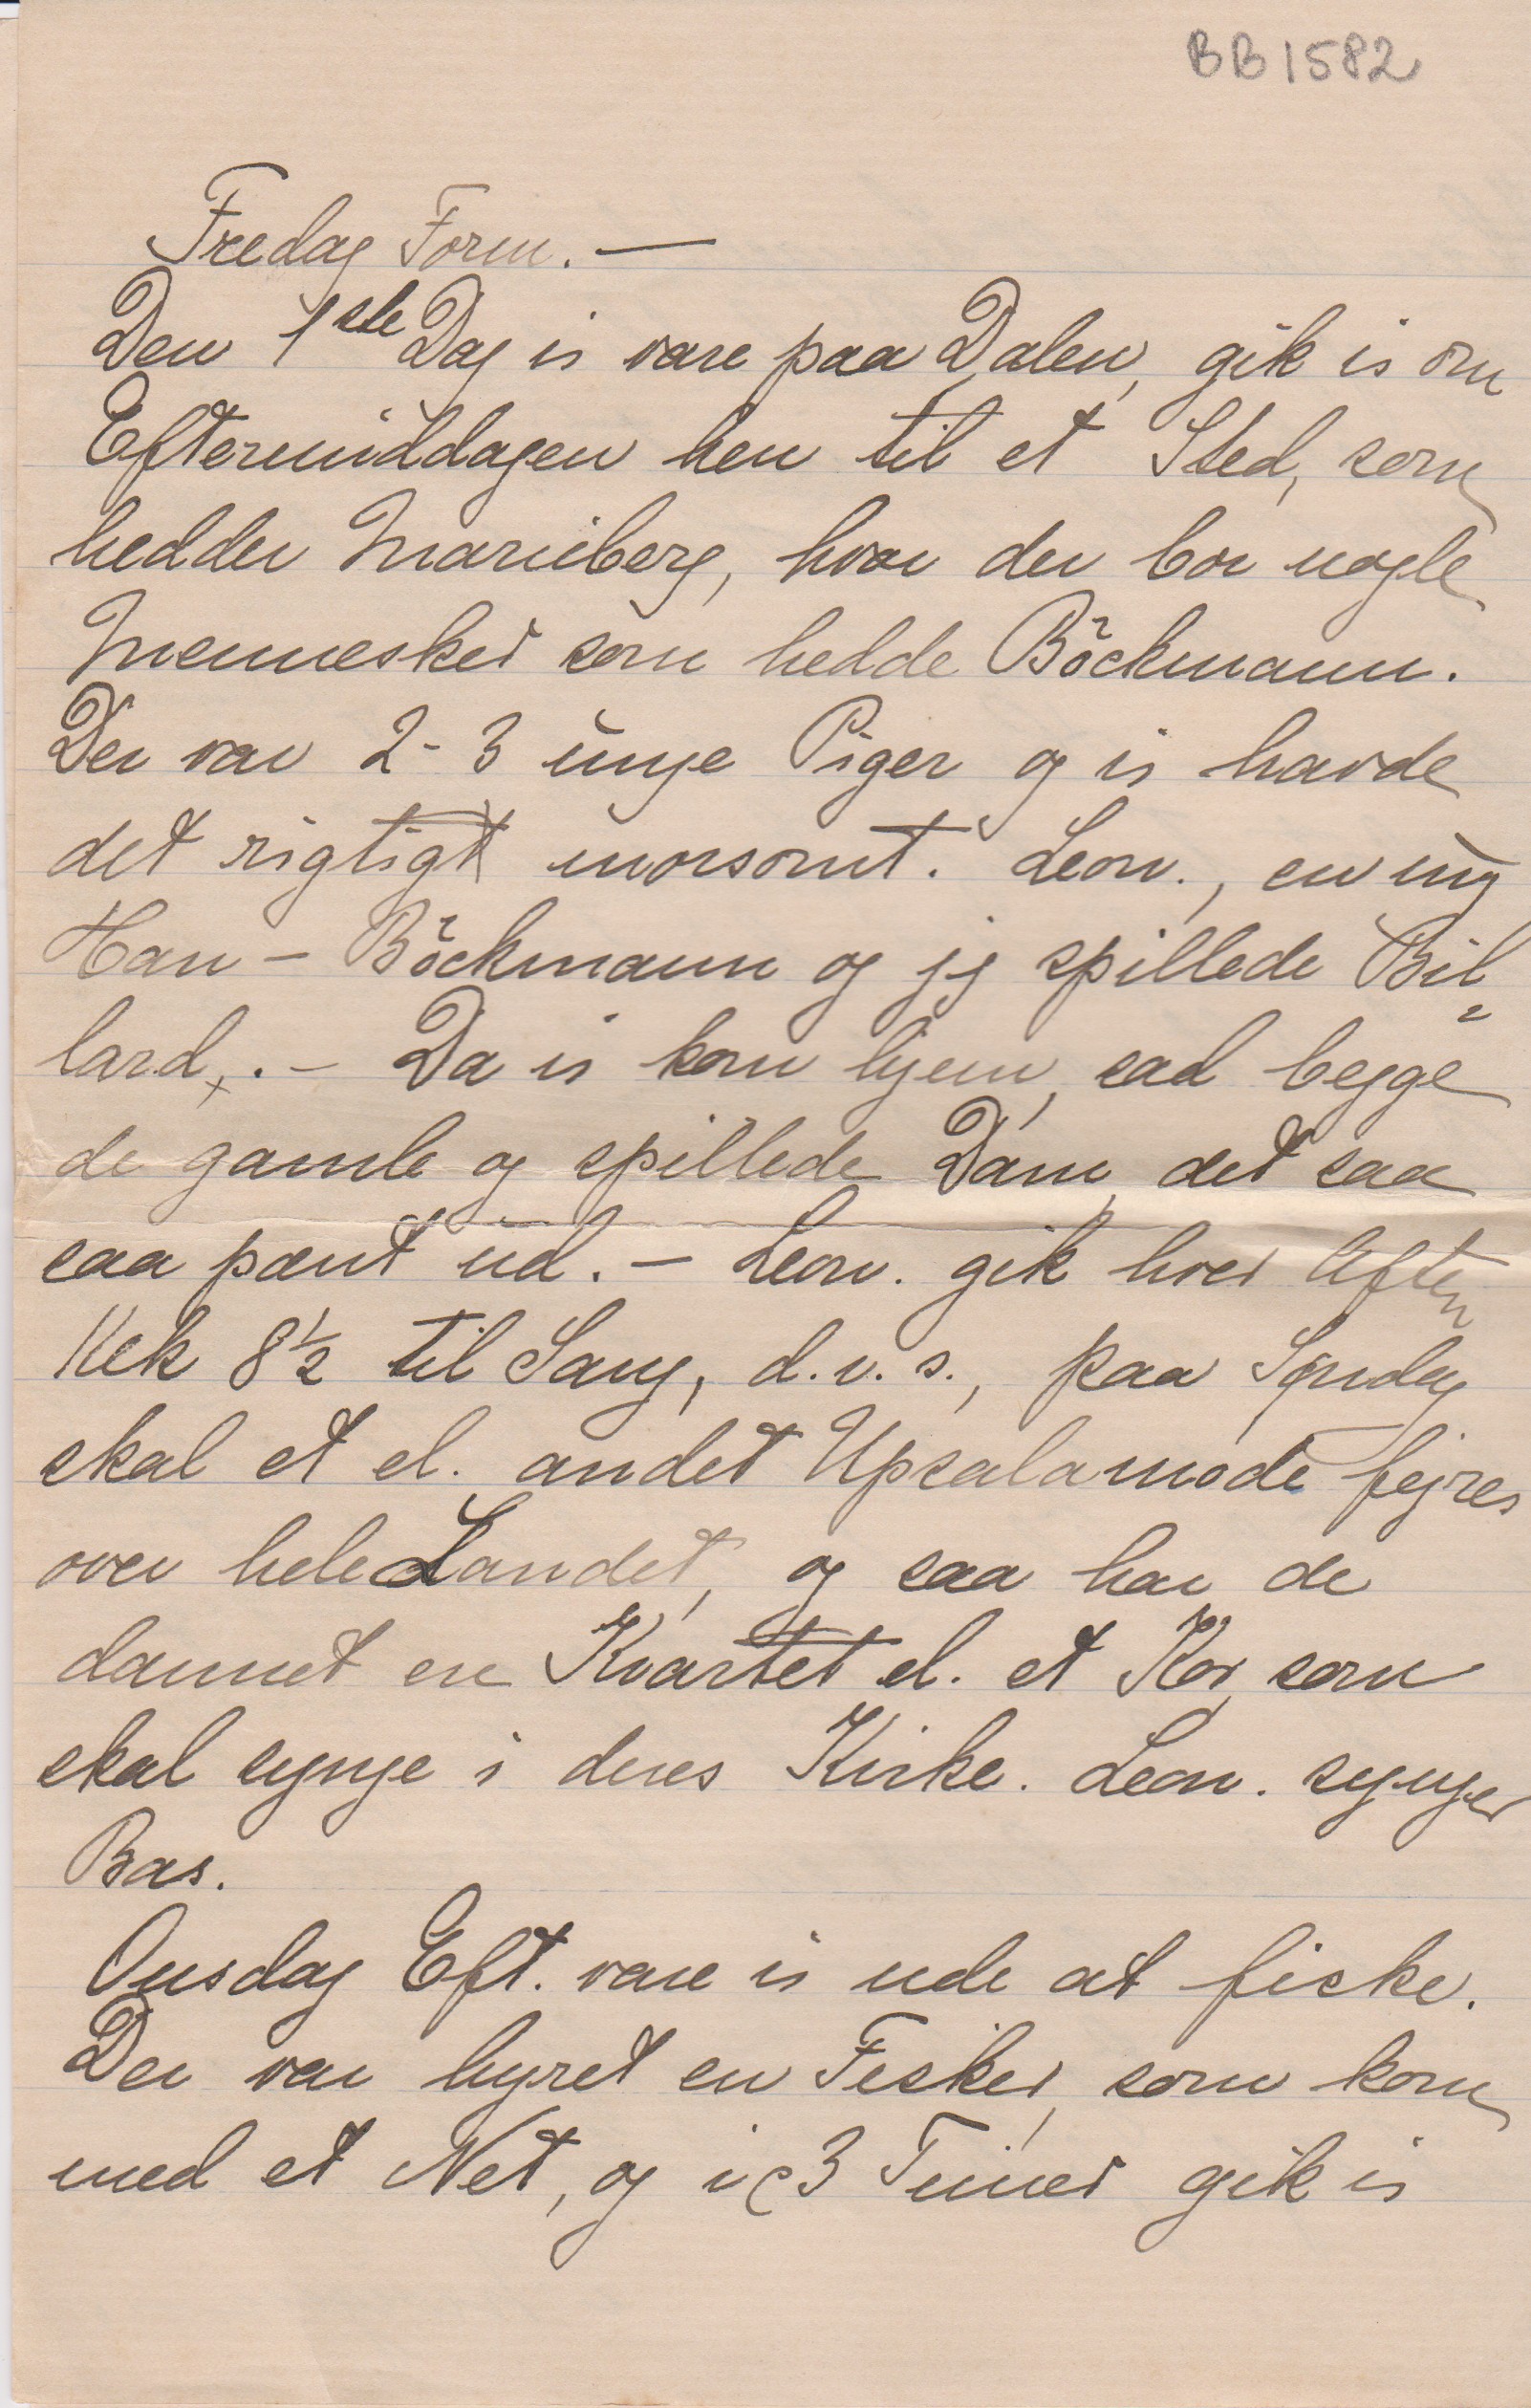 BB1582
Fredag Form. —
Den 1ste Dag vi vare paa Dalen, gik vi om
Eftermiddagen hen til et Sted, som
hedder Marieberg, hvor der bor nogle
Mennesker som hedde Böckmann.
Der var 2-3 unge Piger og vi havde
det rigtigt morsomt. Leon., en ung
Han - Böckmann og jeg spillede Bil-
lard. - Da vi kom hjem, sad begge
de gamle og spillede Dam, det saa
saa pænt ud. - Leon. gik hver Aften
Klk 8½ til Sang, d.v.s., paa Søndag
skal et el. andet Upsalamøde fejres
over hele Landet, og saa har de
dannet en Kvartet el. et Kor, som
skal synge i deres Kirke. Leon. synger
Bas.
Onsdag Eft. vare vi ude at fiske.
Der var hyret en Fisker, som kom
med et Net, og i c 3 Timer gik vi